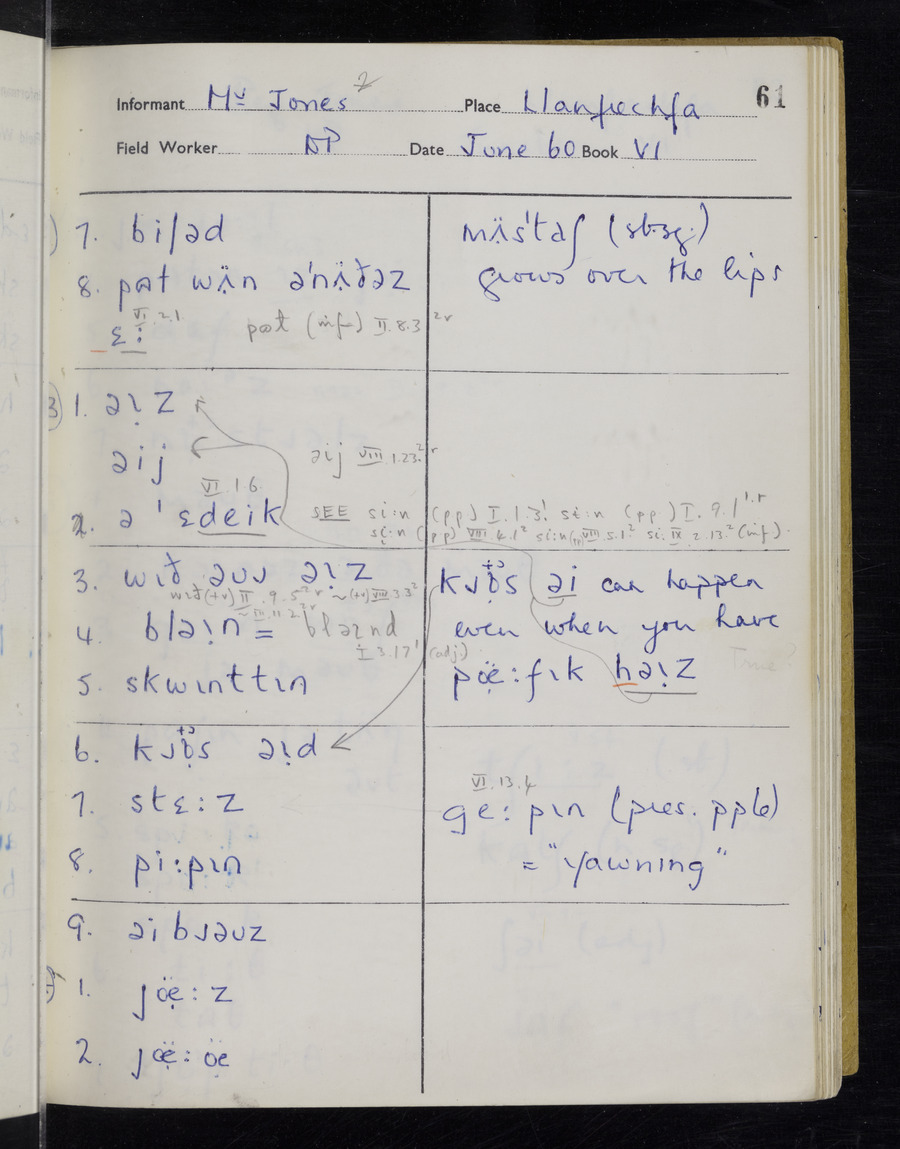 61
Informant Mr Jones 2 Place Llanfrechfa
Field Worker DP Date June 60 Book VI
7. biʃəd
8. pɒt wʌ̈n ə'nʌ̈ðəz
VI 2.1
ɛ:
pɒt (inf) II.8.3
mʌ̈s'taʃ (sb.sg.)
grows over the lips
3) 1. əi̞z
əij
əij VIII.1.23.
VI.1.6.
2. ə 'ɛdeik
SEE si:n (pp) I.1.3. si:n (pp) I.9.1
si:n (pp) VIII 4.1 si:n (pp) VIII.5.1 si: IX 2.13. (inf).
3. wɪð əuɹ əi̞z
wɪð (+v) II.9.5 ~ (+v) VIII 3.3
4. bləi̞n = bləɪnd
I 3.17 (adj.)
5. skwɪnttɪn
kɹɒ̣s əi can happen
even when you have
pœ̈:fɪk həi̞z
True?
6. kɹɒ̣s əi̞d
7. stɛ:z
8. pi:pɪn
VI.13.4
ge:pɪn (pres. pple)
= "yawning"
9. əibɹəuz
1. jœ̈:z
2. jœ̈:œ̈